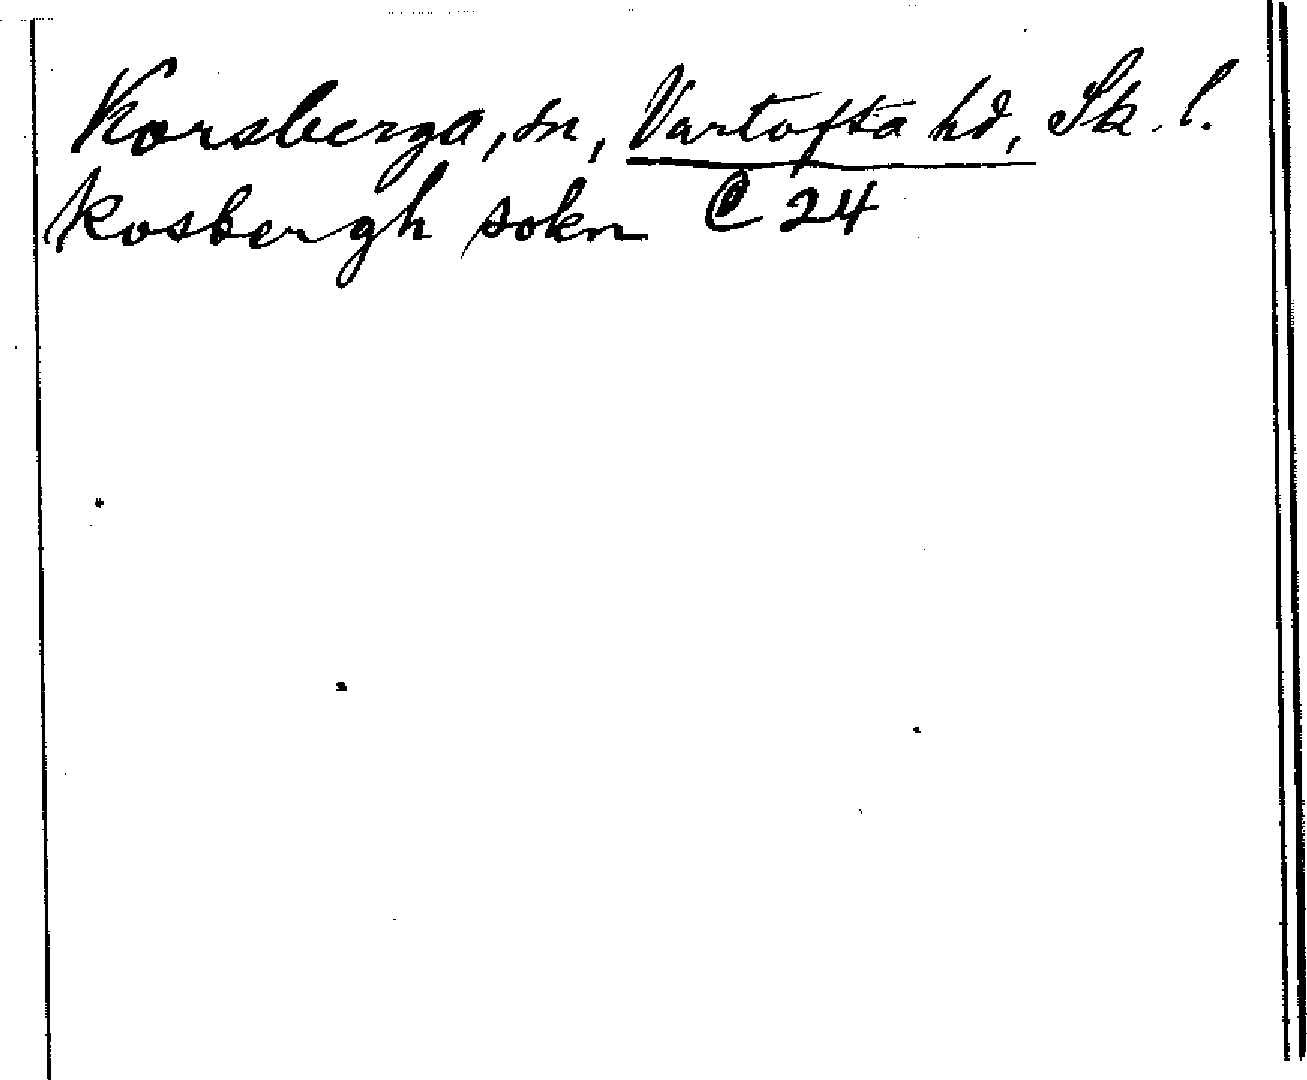 Korsberga, sn, Vartofta hd, Sk. l.
Kosbergh sokn C 24